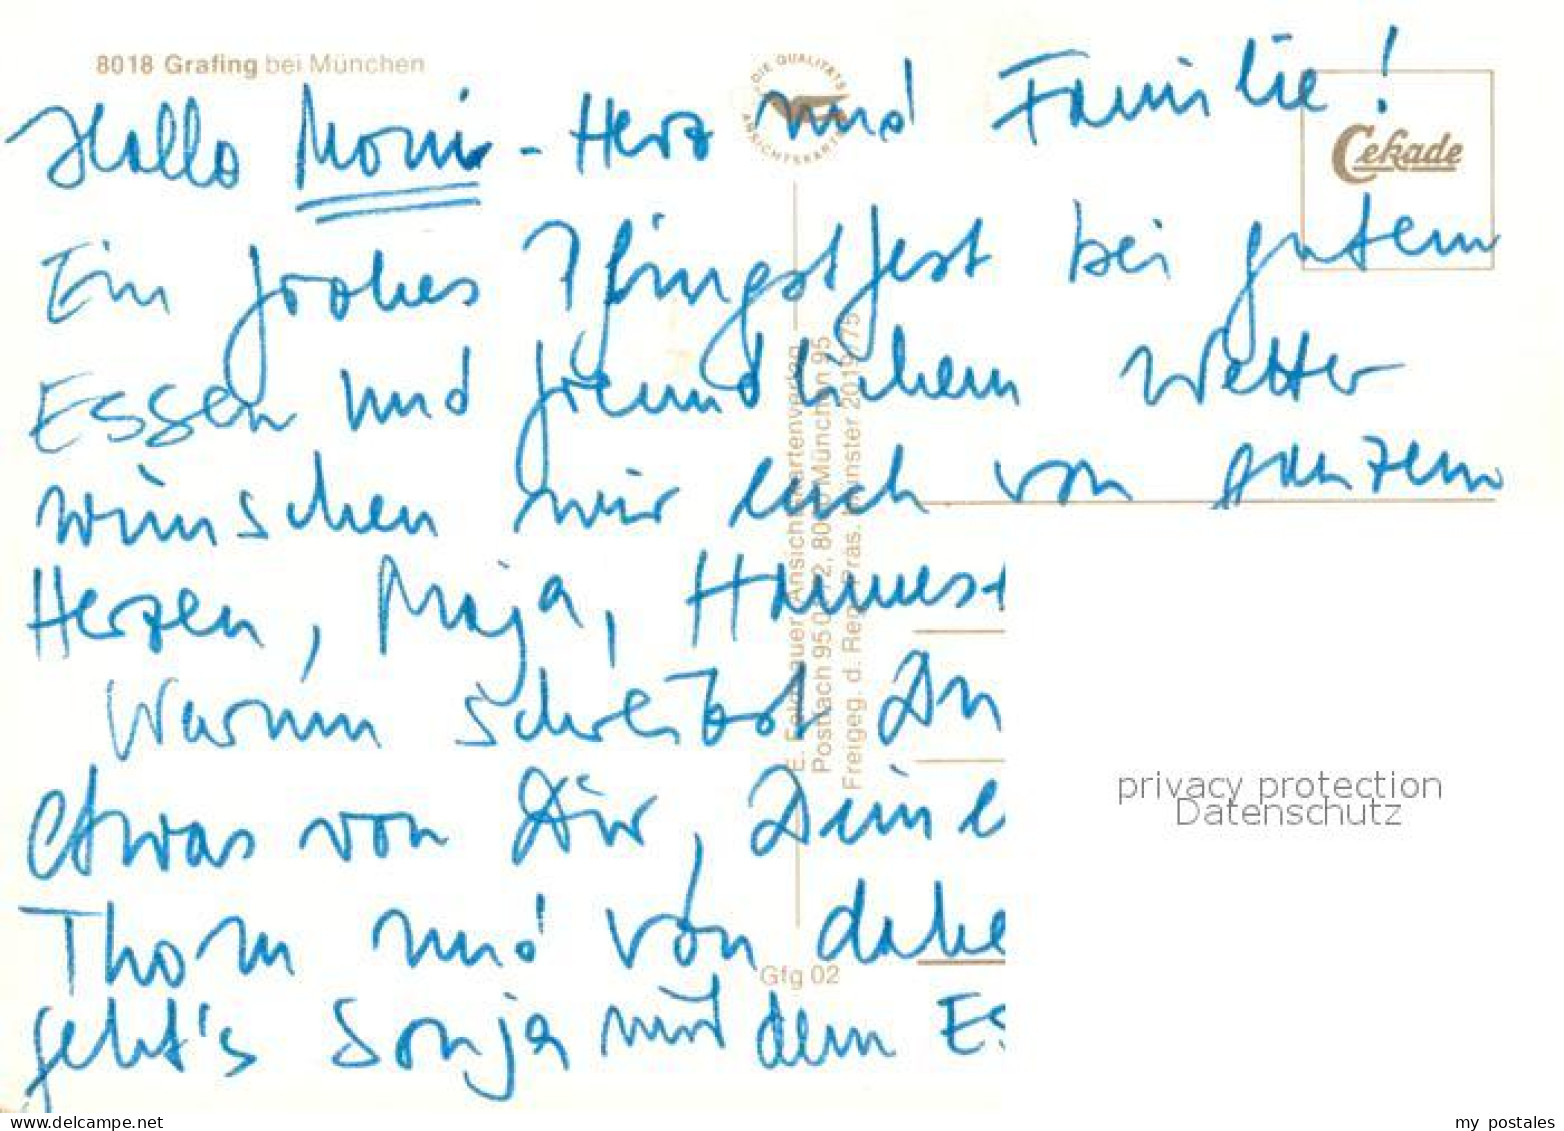 8018 Grafing bei München
DIE QUALITÄTS
ANSICHTSKARTE
Cekade
Hallo Moni-Herz und Familie!
Ein frohes Pfingstfest bei gutem
Essen und freundlichem Wetter
wünschen wir euch von ganzem
Herzen, Maja, Hannes+
Warum schreibst Du
etwas von Dir, Deine
Thom und von dahe
geht's Sonja mit dem Es
E. Feldbauer, Ansichtskartenverlag
Postfach 95 04 72, 8000 München 95
Freigeg. d. Reg. Präs. Münster 2019/75
Gfg 02
privacy protection
Datenschutz
www.delcampe.net
my_postales